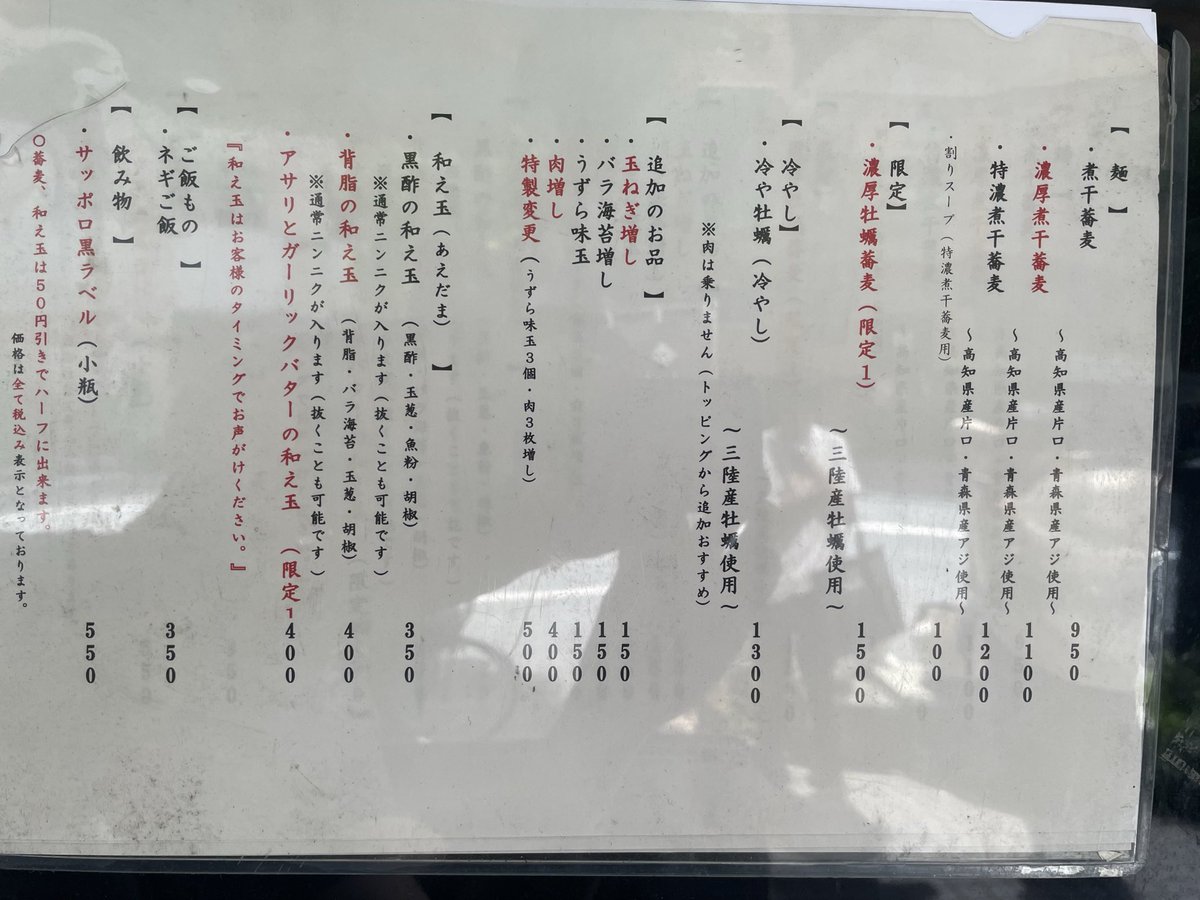 【 麺 】
・煮干蕎麦 950
～高知県産片口・青森県産アジ使用～
・濃厚煮干蕎麦 1100
～高知県産片口・青森県産アジ使用～
・特濃煮干蕎麦 1200
～高知県産片口・青森県産アジ使用～
・割りスープ（特濃煮干蕎麦用） 100
【限定】
・濃厚牡蠣蕎麦（限定1） 1500
～三陸産牡蠣使用～
【冷やし】
・冷や牡蠣（冷やし） 1300
～三陸産牡蠣使用～
※肉は乗りません（トッピングから追加おすすめ）
【追加のお品 】
・玉ねぎ増し 150
・バラ海苔増し 150
・うずら味玉 150
・肉増し 400
・特製変更（うずら味玉3個・肉3枚増し） 500
【 和え玉（あえだま） 】
・黒酢の和え玉 （黒酢・玉葱・魚粉・胡椒） 350
※通常ニンニクが入ります（抜くことも可能です）
・背脂の和え玉 （背脂・バラ海苔・玉葱・胡椒） 400
※通常ニンニクが入ります（抜くことも可能です）
・アサリとガーリックバターの和え玉 （限定1 400
『和え玉はお客様のタイミングでお声がけください。』
【 ご飯もの 】
・ネギご飯 350
【 飲み物 】
・サッポロ黒ラベル（小瓶） 550
〇蕎麦、和え玉は50円引きでハーフに出来ます。
価格は全て税込み表示となっております。